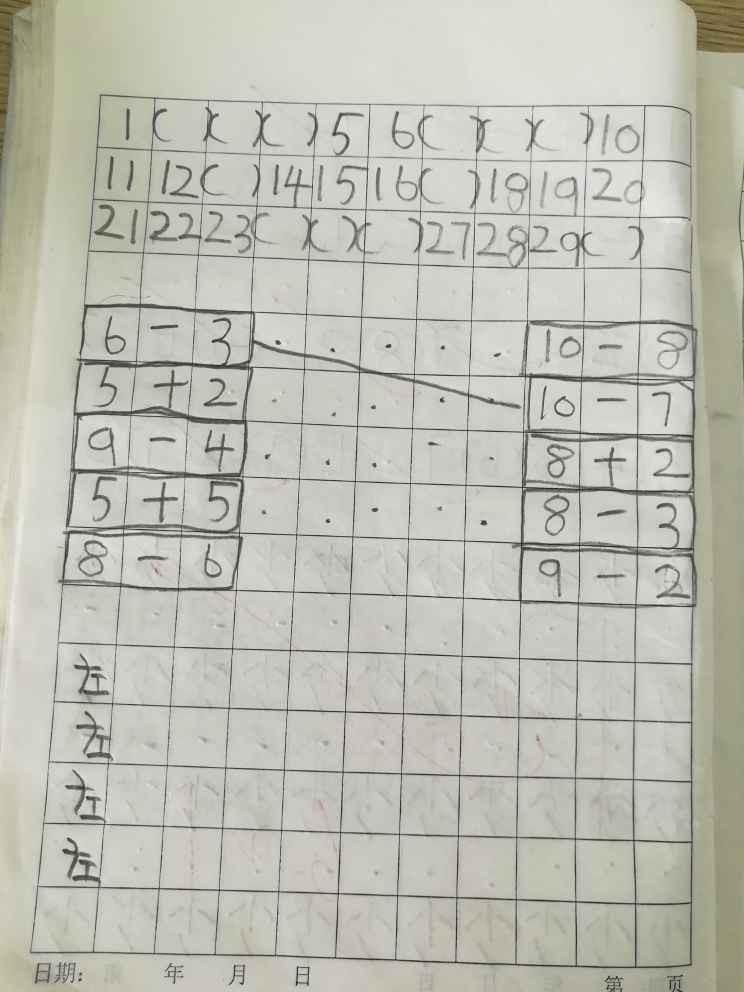 1( )( )( )5 6( )( )( )10
11 12( )14 15 16( )18 19 20
21 22 23( )( )( )27 28 29( )
6 - 3 10 - 8
5 + 2 10 - 7
9 - 4 8 + 2
5 + 5 8 - 3
8 - 6 9 - 2
左
左
左
左
日期: 年 月 日 第 页